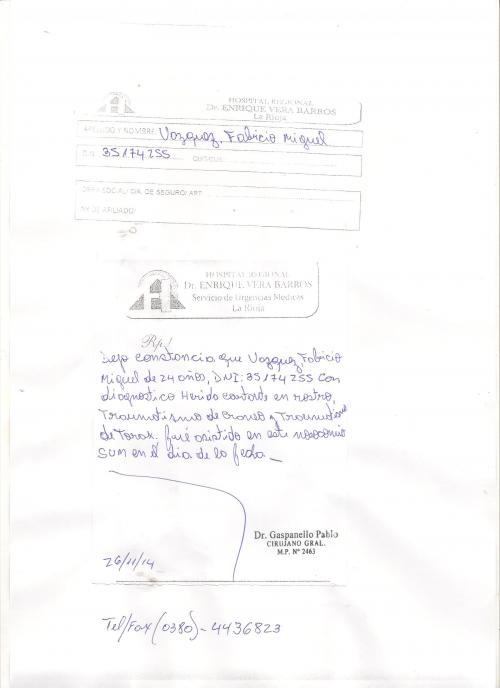 HOSPITAL REGIONAL
Dr. ENRIQUE VERA BARROS
La Rioja
APELLIDO Y NOMBRE: Vazquez, Fabricio Miguel
D.N.I. 35174255
OBRA SOCIAL/ CIA. DE SEGURO/ ART:
Nº DE AFILIADO/
HOSPITAL REGIONAL
Dr. ENRIQUE VERA BARROS
Servicio de Urgencias Medicas
La Rioja
Rp./
Dejo constancia que Vazquez, Fabricio
Miguel de 24 años, DNI: 35174255 con
diagnostico Herida cortante en rostro,
Traumatismo de Craneo y Traumatismo
de Torax. fué asistido en este nosocomio
SUM en el dia de la fecha _
Dr. Gaspanello Pablo
CIRUJANO GRAL.
M.P. Nº 2463
26/11/14
Tel/Fax (0380)- 4436823